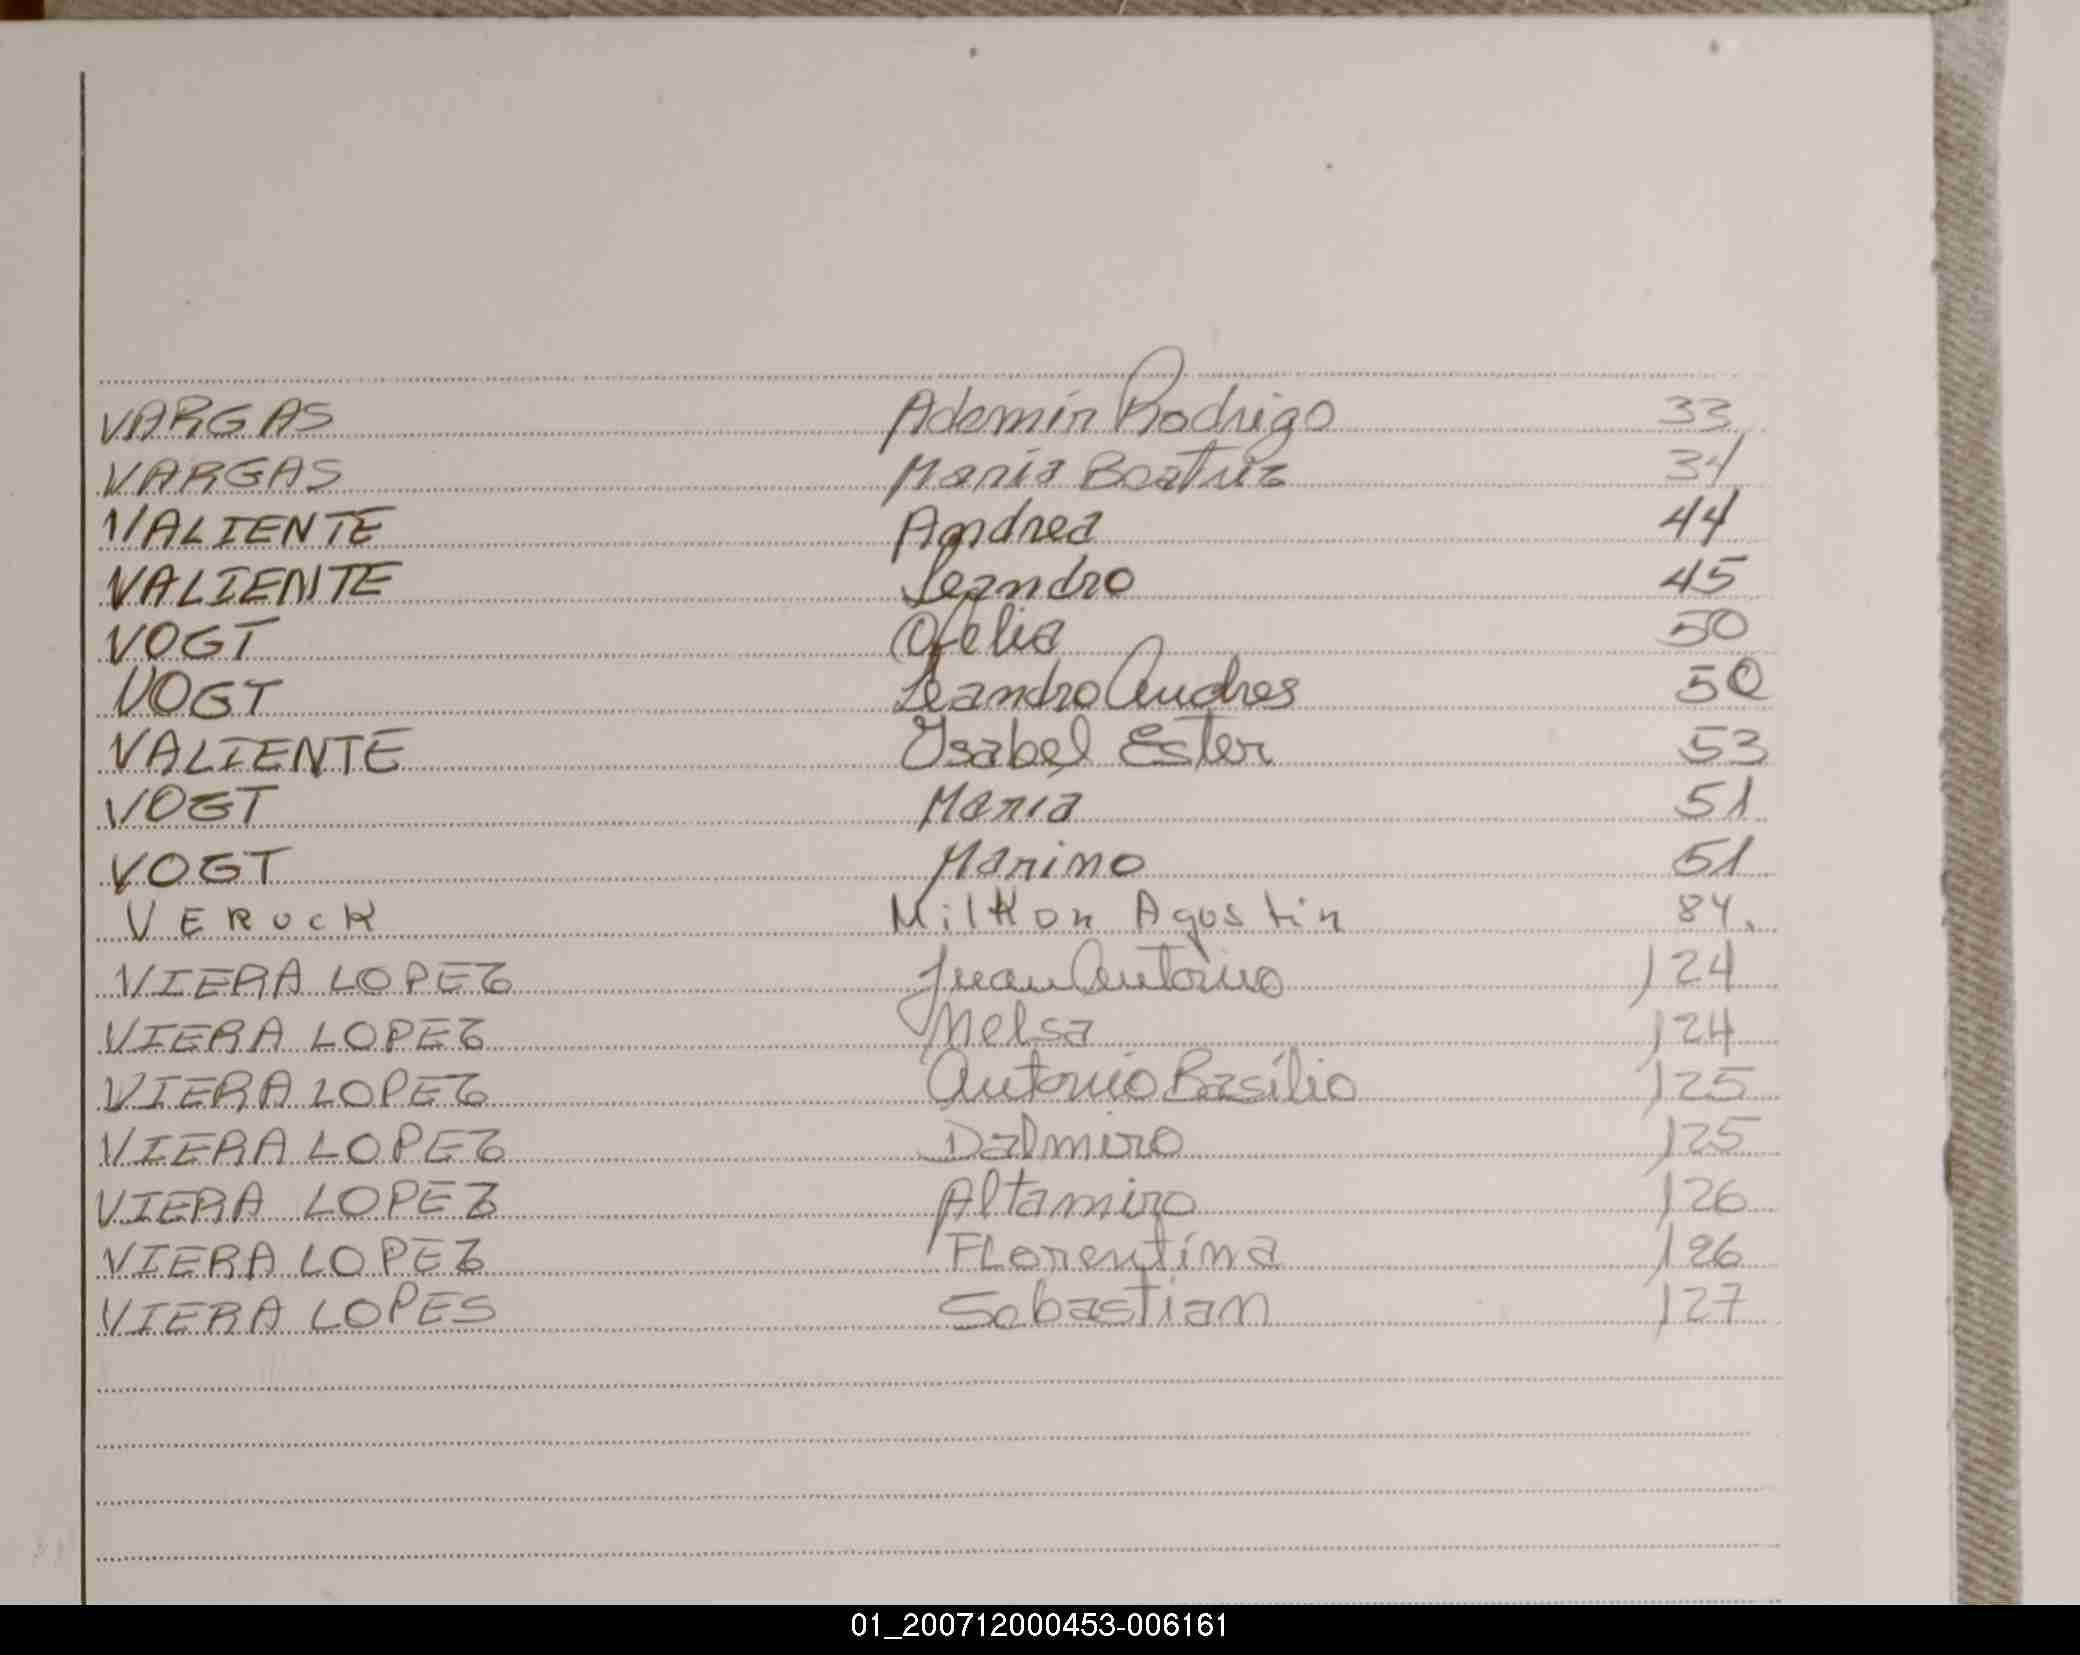 VARGAS Ademir Rodrigo 33
VARGAS Maria Beatriz 34
VALIENTE Andrea 44
VALIENTE Leandro 45
VOGT Ofelia 50
VOGT Leandro Andres 50
VALIENTE Ysabel Ester 53
VOGT Maria 51
VOGT Marino 51
VERUCK Milton Agustin 84.
VIERA LOPEZ Juan Antonio 124
VIERA LOPEZ Nelsa 124
VIERA LOPEZ Antonio Basilio 125
VIERA LOPEZ Dalmiro 125
VIERA LOPEZ Altamiro 126
VIERA LOPEZ Florentina 126
VIERA LOPES Sebastian 127
01_200712000453-006161